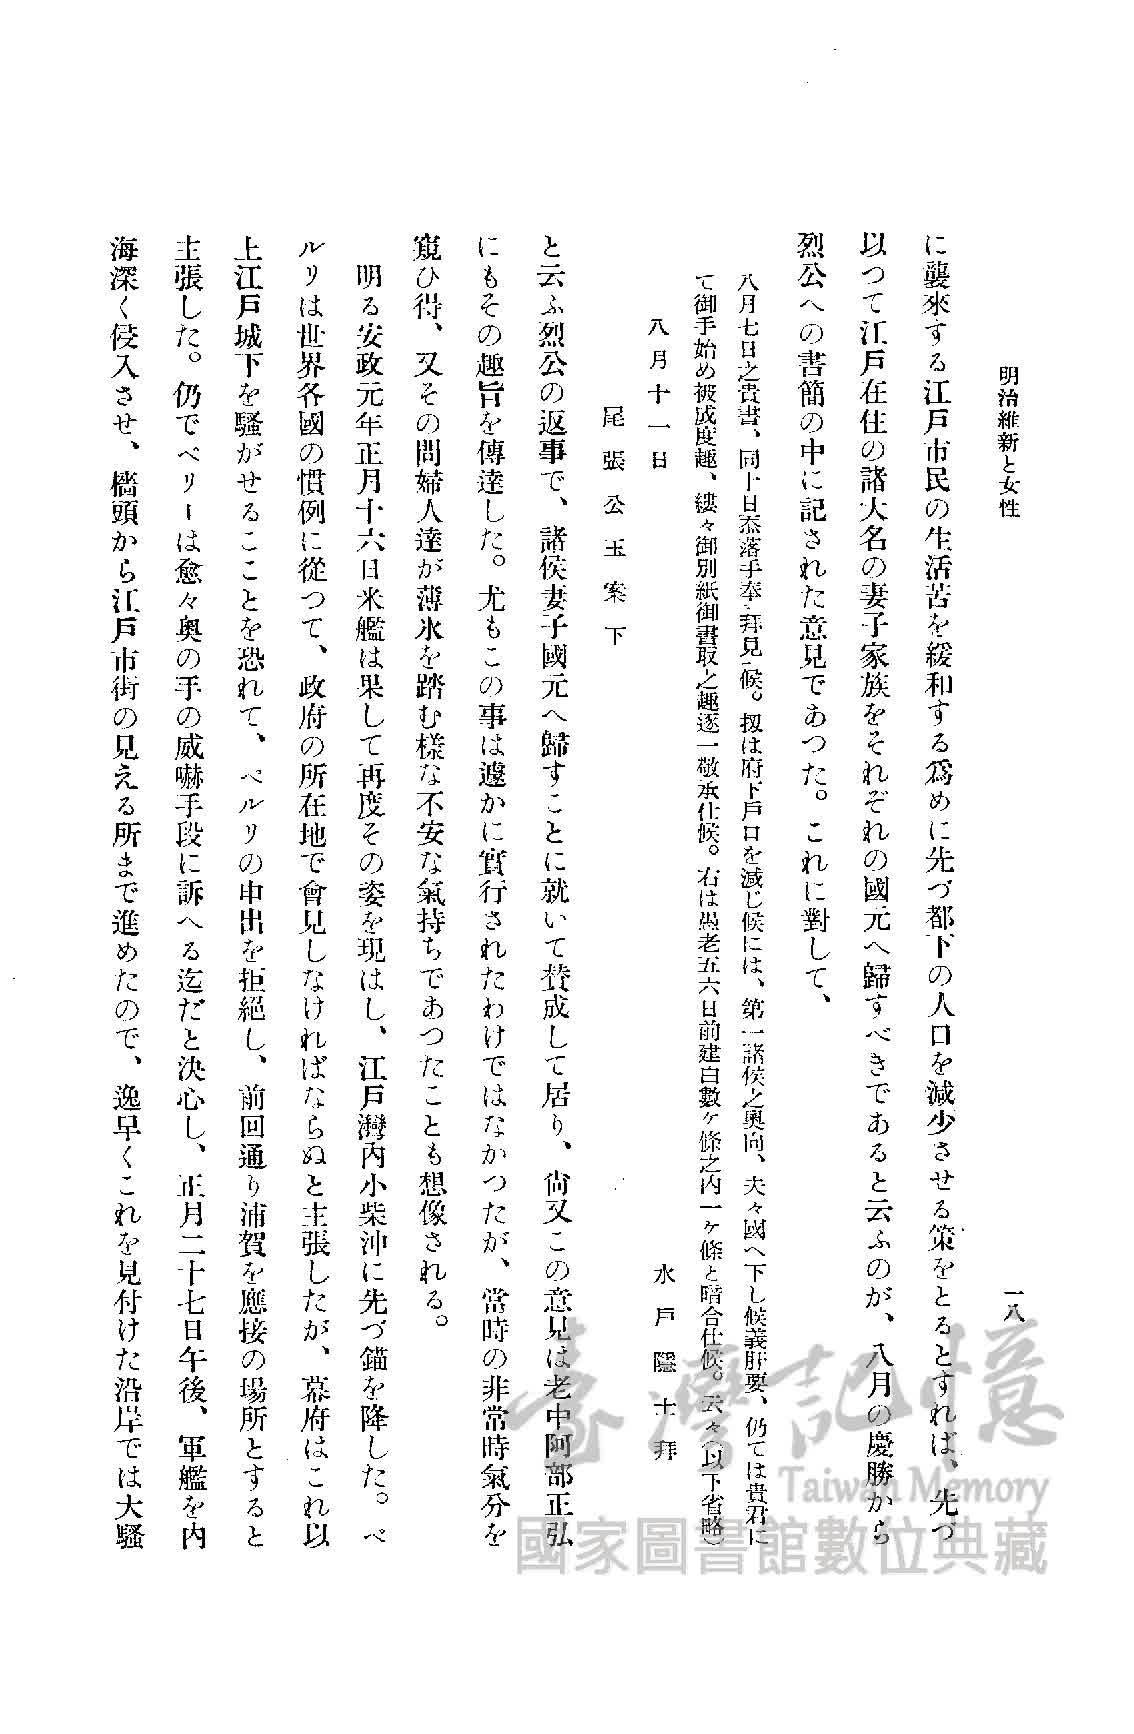 明治維新と女性
一八
に襲來する江戸市民の生活苦を緩和する爲めに先づ都下の人口を減少させる策をとるとすれば、先づ
以つて江戸在住の諸大名の妻子家族をそれぞれの國元へ歸すべきであると云ふのが、八月の慶勝から
烈公への書簡の中に記された意見であつた。これに對して、
八月七日之貴書、同十日忝落手奉㆑拜見㆒候。扨は府下戸口を減じ候には、第一諸侯之奥向、夫々國へ下し候義肝要、仍ては貴君に
て御手始め被成度趣、縷々御別紙御書取之趣逐一敬承仕候。右は愚老五六日前建白數ケ條之内一ケ條と暗合仕候。云々(以下省略)
八月十一日
水戸隱士拜
尾張公玉案下
と云ふ烈公の返事で、諸侯妻子國元へ歸すことに就いて賛成して居り、尙又この意見は老中阿部正弘
にもその趣旨を傳達した。尤もこの事は遽かに實行されたわけではなかつたが、當時の非常時氣分を
窺ひ得、又その間婦人達が薄氷を踏む樣な不安な氣持ちであつたことも想像される。
明る安政元年正月十六日米艦は果して再度その姿を現はし、江戸灣内小柴沖に先づ錨を降した。ペ
ルリは世界各國の慣例に從つて、政府の所在地で會見しなければならぬと主張したが、幕府はこれ以
上江戸城下を騷がせることを恐れて、ペルリの申出を拒絕し、前回通り浦賀を應接の場所とすると
主張した。仍でペリーは愈々奥の手の威嚇手段に訴へる迄だと決心し、正月二十七日午後、軍艦を内
海深く侵入させ、檣頭から江戸市街の見える所まで進めたので、逸早くこれを見付けた沿岸では大騷
臺灣記憶
Taiwan Memory
國家圖書館數位典藏